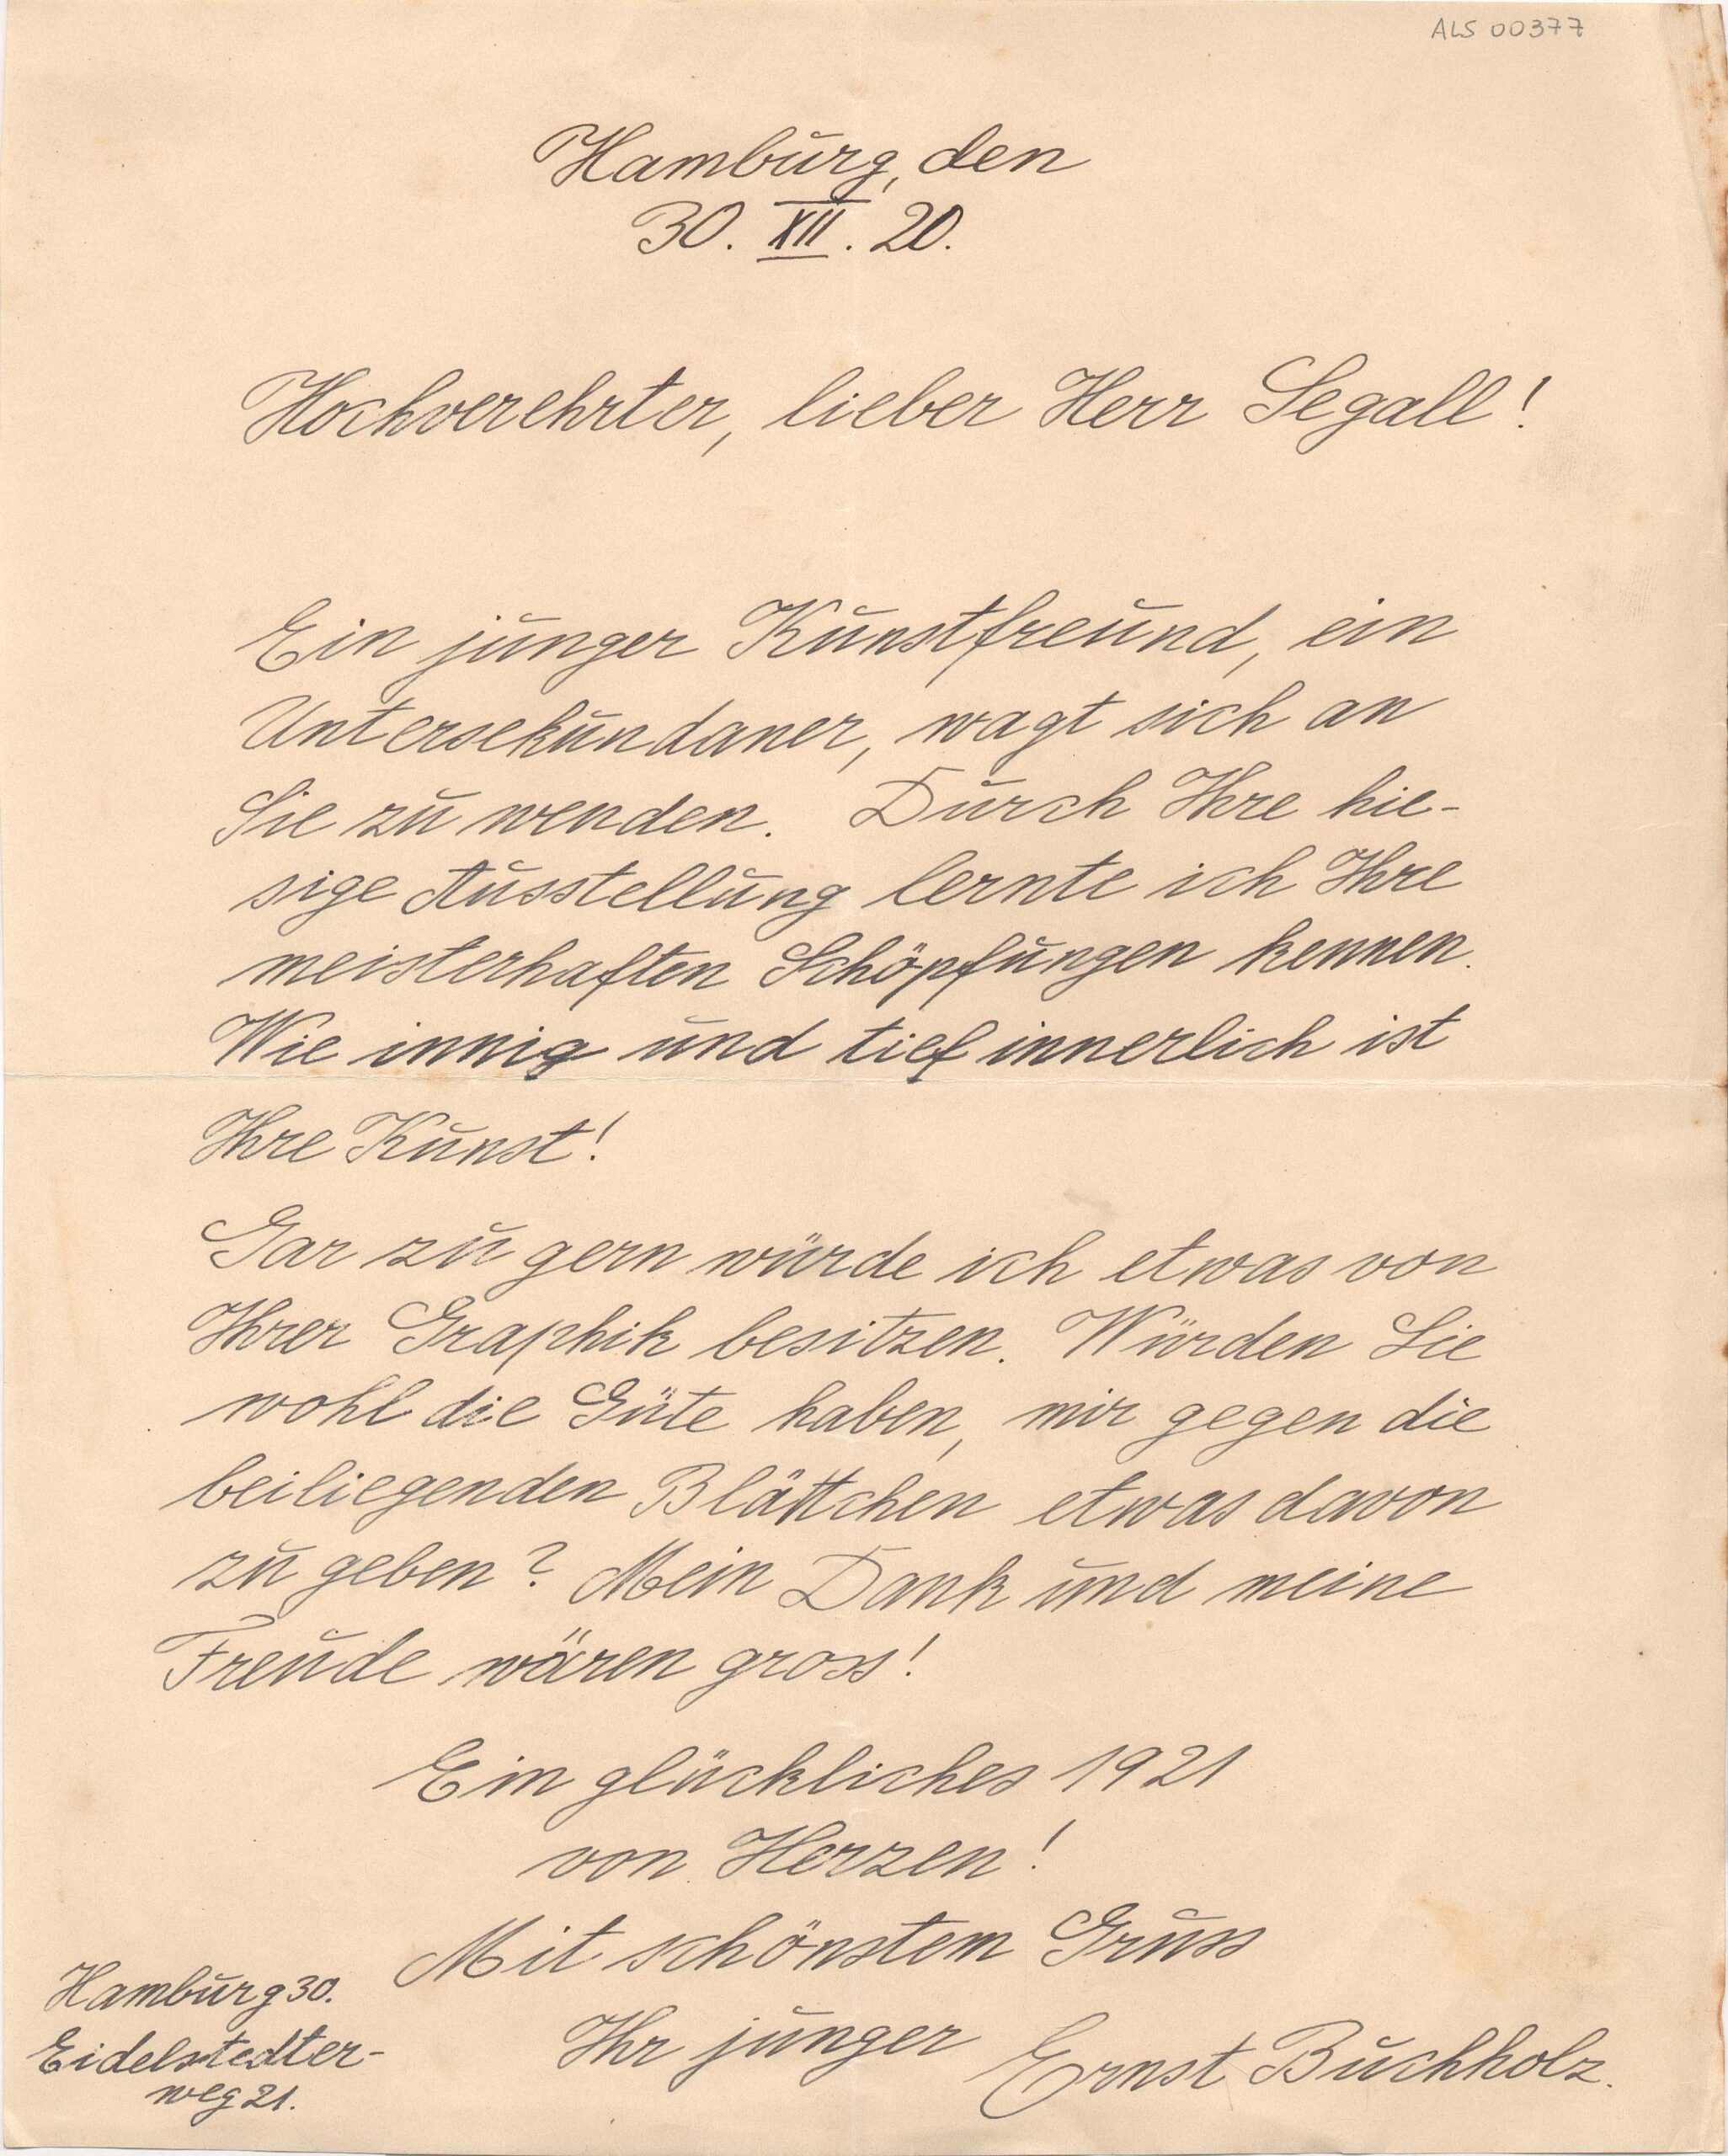 ALS 00377
Hamburg, den
30. XII. 20.
Hochverehrter, lieber Herr Segall!
Ein junger Kunstfreund, ein
Untersekundaner, wagt sich an
Sie zu wenden. Durch Ihre hie-
sige Ausstellung lernte ich Ihre
meisterhaften Schöpfungen kennen.
Wie innig und tief innerlich ist
Ihre Kunst!
Gar zu gern würde ich etwas von
Ihrer Graphik besitzen. Würden Sie
wohl die Güte haben, mir gegen die
beiliegenden Blättchen etwas davon
zu geben? Mein Dank und meine
Freude wären gross!
Ein glückliches 1921
von Herzen!
Mit schönstem Gruss
Ihr junger Ernst Buchholz.
Hamburg 30.
Eidelstedter-
weg 21.